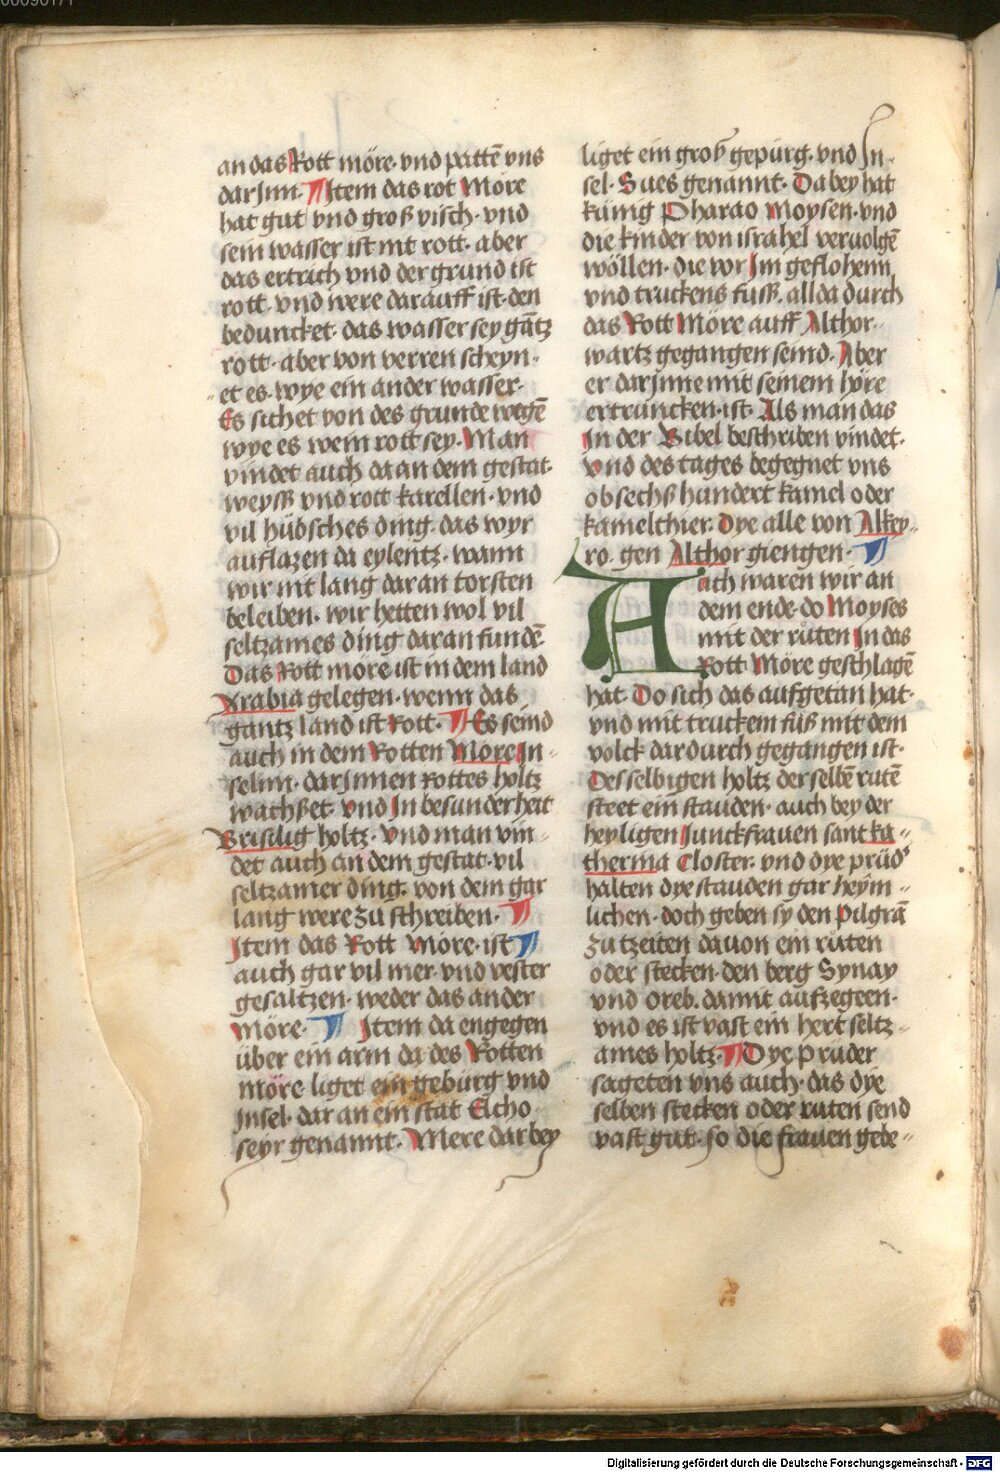 an das Rott möre. vnd patte͂ vns
darJnn. ¶ Jtem das rot Möre
hat gut vnd groß visch. vnd
sein wasser ist nit rott. aber
das ertrich vnd der grund ist
rott. vnd were darauff ist. den
beduncket. das wasser sey ga͂tz
rott. aber von verren scheyn-
et es. wye ein ander wasser.
Es sichet von des grunde wege͂
wye es wein rott sey. Man
vindet auch da an dem gestat.
weyß vnd rott karellen. vnd
vil hübsches ding. das wyr
auflazen da eylentz. wann
wir nit lang daran torsten
beleiben. wir hetten wol vil
seltzames ding daran funde͂
Das Rott möre ist in dem land
Arabia gelegen. wenn das
gantz land ist Rott. ¶ Es seind
auch in dem Rotten Möre Jn-
selnn. darJnnen rottes holtz
wachßet. vnd Jn besunderheit
Brisilig holtz. Vnd man vin-
det auch an dem gestat. vil
seltzamer ding. von dem gar
lang were zu schreiben. ¶
Jtem das Rott Möre. ist ¶
auch gar vil mer. vnd vester
gesaltzen. weder das ander
möre. ¶ Jtem da engegen
über ein arm da des Rotten
möre liget ein gebürg vnd
Jnsel. dar an ein stat Elcho
seyr genannt. Mere darbey
liget ein groß gepürg. vnd Jn-
sel. Sues genannt. Da bey hat
künig Pharao Moysen. vnd
die kinder von israhel veruolge͂
wöllen. die vor Jm geflohenn
vnd truckens fuß. allda durch
das Rott Möre auff Althor.
wartz gegangen seind. Aber
er darJnne mit seinem höre
ertruncken. ist. Als man das
Jn der Bibel beschriben vindet.
Vnd des tages begegnet vns
ob sechß hundert kamel oder
kamelthier. Dye alle von Alkey-
ro. gen Althor giengen. ¶
Auch waren wir an
dem ende. do Moyses
mit der růten Jn das
Rott Möre geschlage͂
hat. Do sich das aufgetan hat.
vnd mit truckem fůß mit dem
volck dardurch gegangen ist.
Desselbigen holtz der selbe͂ rute͂
steet ein stauden. auch bey der
heyligen Junckfrauen sant ka-
therina Closter. vnd dye prüd'
halten dye stauden gar heym-
lichen. doch geben sy den Pilgra͂
zu tzeiten dauon ein růten
oder stecken. den berg Synay
vnd oreb. damit aufzegeen.
vnd es ist vast ein hert seltz-
ames holtz. ¶ Dye prüder
sageten vns auch. das dye
selben stecken oder ruten send
vast gut. so die frauen gebe-
Digitalisierung gefördert durch die Deutsche Forschungsgemeinschaft - DFG